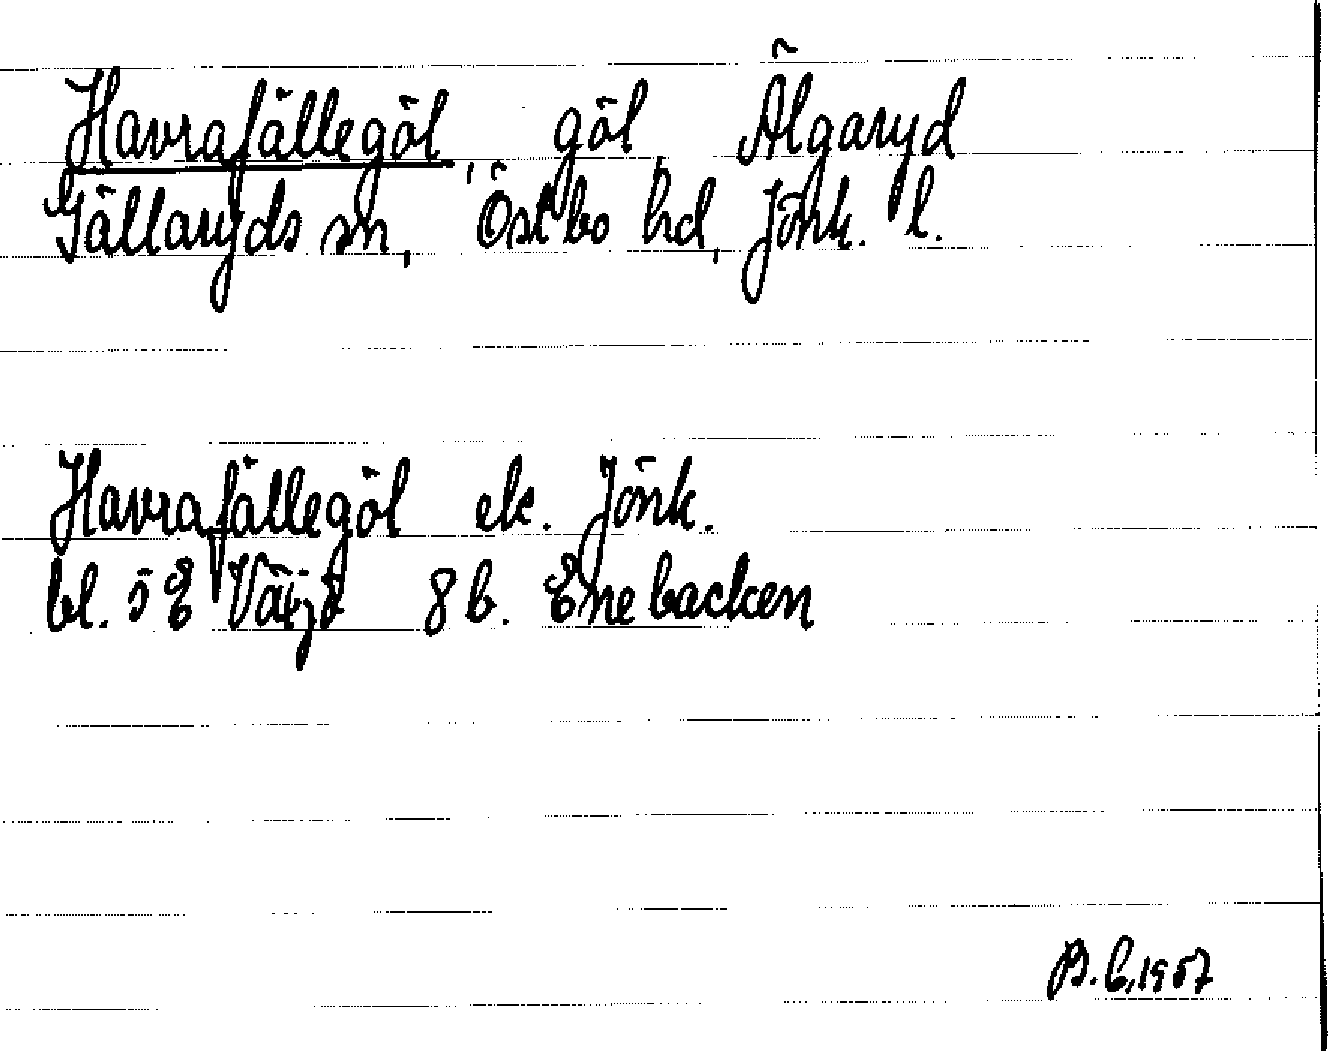 Havrafällegöl, göl, Älgaryd
Gällaryds sn, Östbo hd, Jönk. l.
Havrafällegöl ek. Jönk.
bl. 5 E 8 b. Enebacken
B. C, 1957